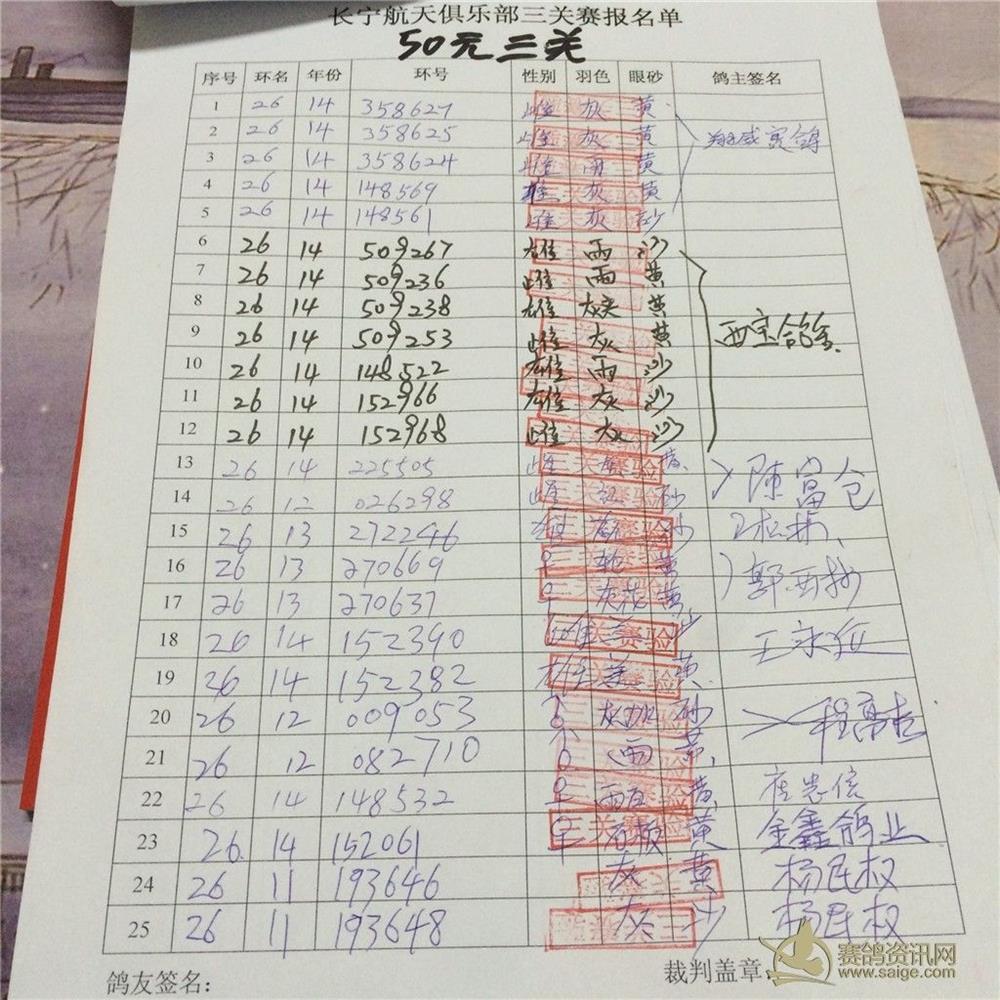 长宁航天俱乐部三关赛报名单
50元三关
序号 环名 年份 环号 性别 羽色 眼砂 鸽主签名
1 26 14 358627 雌 灰 黄
2 26 14 358625 雌 灰 黄
3 26 14 358624 雌 雨 黄
4 26 14 148569 雄 灰 黄
5 26 14 148561 雌 灰 砂
6 26 14 509267 雄 雨 沙
7 26 14 509236 雌 雨 黄
8 26 14 509238 雄 灰 黄
9 26 14 509253 雌 灰 黄
10 26 14 148522 雄 雨 沙
11 26 14 152966 雄 灰 沙
12 26 14 152968 雌 灰 沙
13 26 14 225505 雌 黄 陈富仓
14 26 12 026298 雌 砂
15 26 13 272246 雄 沙
16 26 13 270669 ♀ 黄
17 26 13 270637 ♀ 灰花 黄
18 26 14 152390 雄 沙
19 26 14 152382 雄 黄
20 26 12 009053 ♂ 砂
21 26 12 082710 ♂ 雨 黄
22 26 14 148532 ♀ 黄
23 26 14 152061 ♀ 黄 金鑫鸽业
24 26 11 193646 灰 黄 杨民权
25 26 11 193648 灰 沙 杨民权
鸽友签名: 裁判盖章:
赛鸽资讯网
www.saige.com